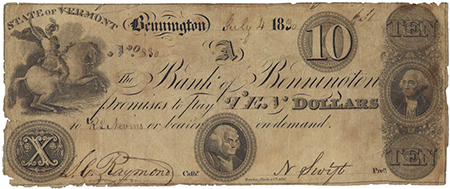 STATE OF VERMONT
Bennington July 4 1830
TEN
No 830 A 10
The Bank of Bennington
promises to pay TEN DOLLARS
to or bearer on demand.
X
J.C. Raymond Cashr N Swift Prest
TEN